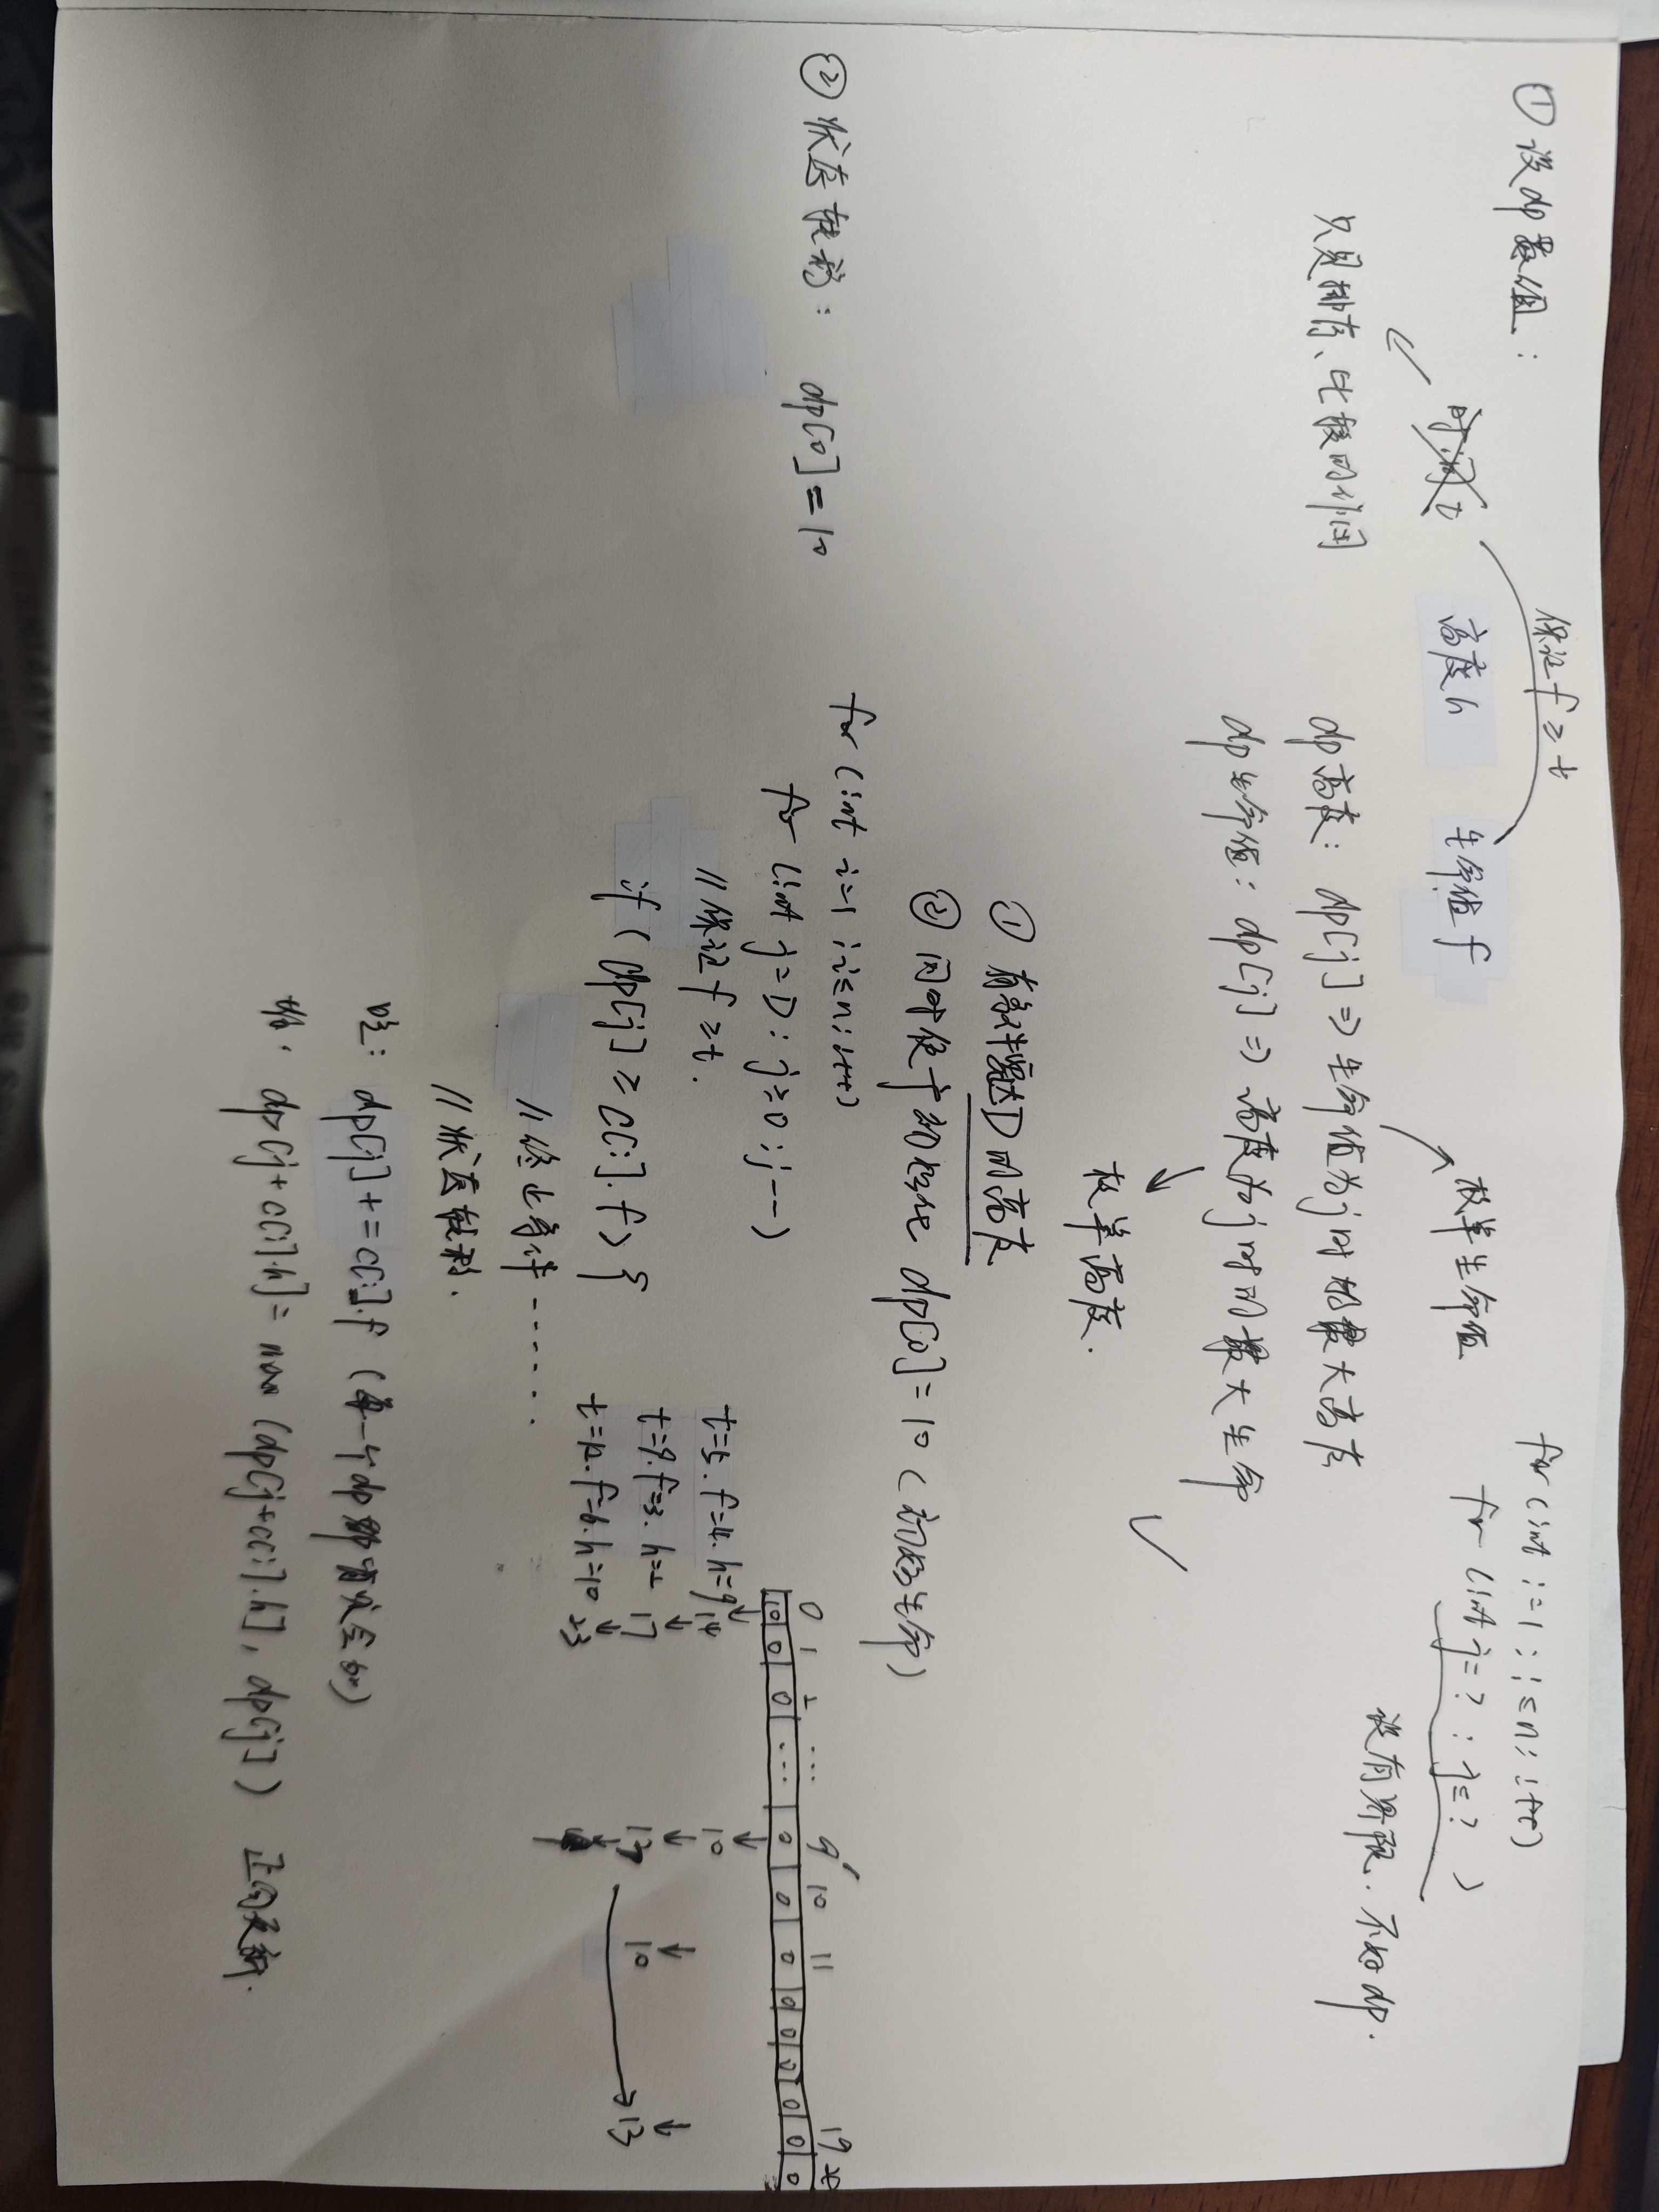 ① 设dp数值：
时间t
高度h
生命值f
保证f≥t
只是排序、比较的时间
for (int i=1; i≤n; i++)
for (int j=?; j≤?)
没有界限.不好dp.
枚举生命值
dp高度: dp[j] => 生命值为j时的最大高度
dp生命值: dp[j] => 高度为j时的最大生命
枚举高度.
① 有条件宽大D的高度
② 同时便于初始化 dp[0]=10 (初始生命)
② 状态转移: dp[0]=10
for (int i=1; i≤n; i++)
for (int j=D; j≥0; j--)
//保证f≥t.
if (dp[j] ≥ c[i].f) {
//终止条件......
//状态转移.
吃: dp[j]+=c[i].f (每一个dp都有发生的)
堆. dp[j+c[i].h]=max(dp[j+c[i].h], dp[j]) 正向更新.
0 1 2 ... 9 10 11 19 20
10 0 0 ... 0 0 0 0 0 0 0 0 0
t=5. f=4. h=9 14 10
t=9. f=3. h=2 17 13 10
t=12. f=6. h=10 23 13